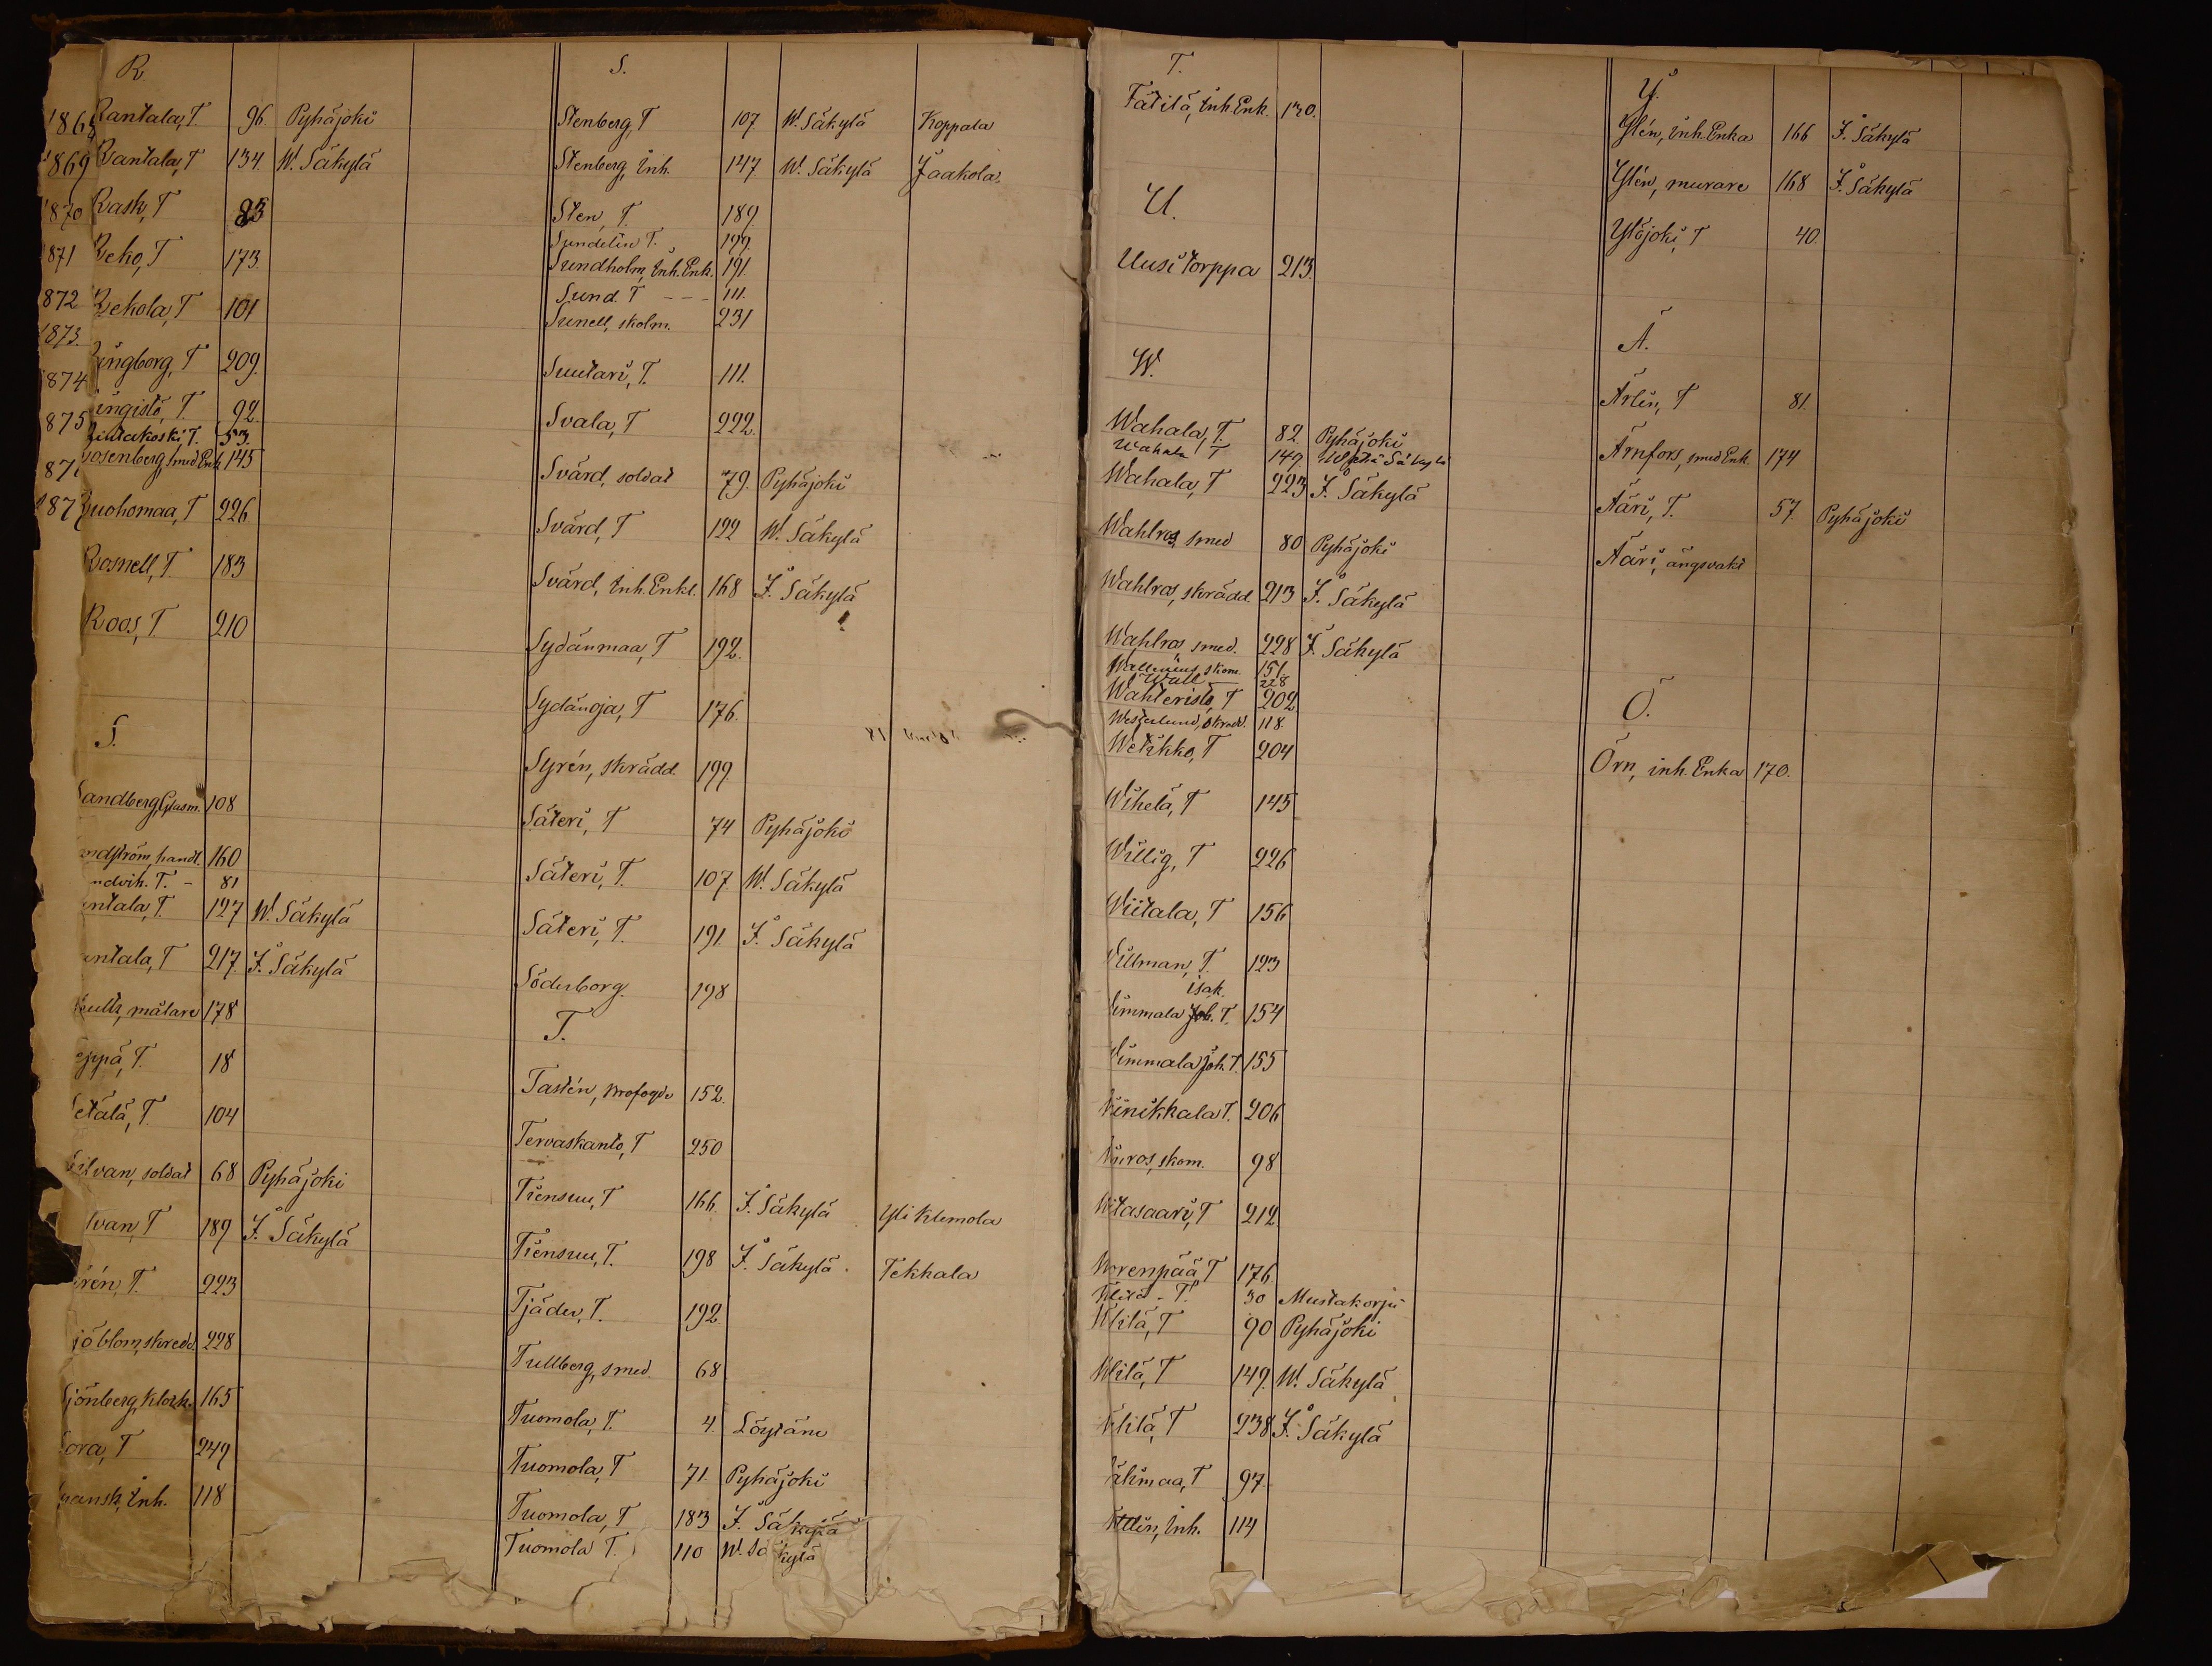 R.
Rantala, T. 96 Pyhäjoki
Rantala, T 134. W. Säkylä
Rask, T 83
Reko, T 173.
Rekola, T 101
Ringborg, T 209.
Ringistö, T. 92.
Rintakoski, T. 53.
Rosenberg, smed Enk 145
Ruohomaa, T 226
Rosnell, T. 183
Roos, T. 210
1869
1870
1871
1872
1873.
1874
1875
S.
Sandberg, Glasm. 108
ndström, handl. 160
ndvih. T. - 81
antala, T. 127 W. Säkylä
antala, T 217. Y. Säkylä
målare 178
eppä, T. 18
etälä, T. 104
ilvan, soldat 68 Pyhäjoki
lvan, T 189 Y. Säkylä
irén, T. 223
jöblom, skredd. 228
Sjönberg, Klock. 165
Sora, T 249
Spansk, Inh. 118
S.
Stenberg, T 107. W. Säkylä Koppala
Stenberg, Inh. 147 W. Säkylä Jaakola
Sten, T. 189.
Sundelin T. 199.
Sundholm, Inh. Enk. 191.
Sund. T - - - 111.
Sunell, skolm. 231
Suutari, T. 111.
Svala, T 222.
Svärd, soldat 79. Pyhäjoki
Svärd, T 122 W. Säkylä
Svärd, Inh. Enkl. 168 Y. Säkylä
Sydänmaa, T 192.
Sydänoja, T 176.
Syrén, skrädd. 199.
Säteri, T 74 Pyhäjoki
Säteri, T. 107 W. Säkylä
Säteri, T. 191. Y. Säkylä
Söderborg. 198
T.
Tastén, Brofogde 152.
Tervaskanto, T 250
Tiensuu, T 166. Y. Säkylä Yli Klemola
Tiensuu, T. 198 Y. Säkylä. Tekkala
Tjäder, T. 192.
Tullberg, smed. 68
Tuomola, T. 4. Löytäne
Tuomola, T 71. Pyhäjoki
Tuomola, T 183 Y. Säkylä
Tuomola T. 110 W. Säkylä
T.
Tätilä, Inh. Enk. 120.
U.
Uusitorppa 213.
W.
Wahala, T. 82. Pyhäjoki
Wahala T 149. Säkylä
Wahala, T 223 Y. Säkylä
Wahlros, smed 80 Pyhäjoki
Wahlros, skrädd. 213 Y. Säkylä
Wahlros smed. 228 Y. Säkylä
skom. 151.
Wall 228
Wahteristo, T 202.
Westerlund, skredd. 118.
Wetikko, T 204
Wihelä, T 145
Willig, T 226
Wiitala, T 156
Willman, T. 123
Isak.
Wimmala Joh. T. 154
Wimmala Joh. T. 155
Winikkala T. 206
Wiros, skom. 98
Witasaari, T 212.
Worenpää, T 176.
- T. 30 Mustakorpi
Wlilä, T 90 Pyhäjoki
Wlilä, T 149. W. Säkylä
Wlilä, T 238 Y. Säkylä
T 97.
Inh. 114
Y.
Ylén, Inh. Enka 166 Y. Säkylä
Ylén, murare 168 Y. Säkylä
Ylöjoki, T 40.
Ä.
Ärlin, T 81.
Ärnfors, smed Enk. 174
Ääri, T. 57. Pyhäjoki
Ääri, ängsvakt
Ö.
Örn, inh. Enka 170.